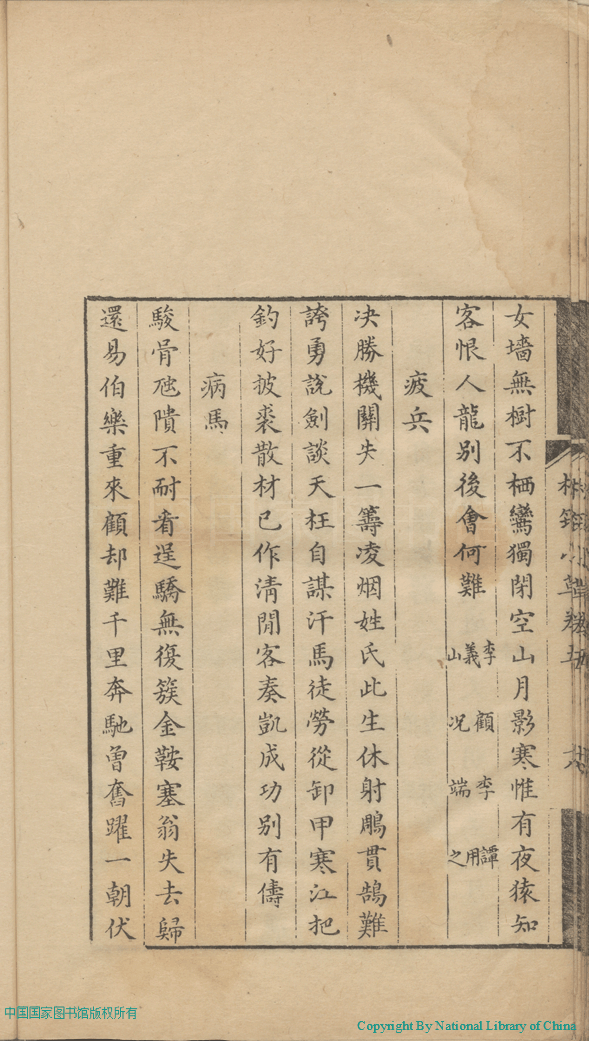 女墻無樹不栖鸞獨閉空山月影寒惟有夜猿知
客恨人龍別後會何難李義山 顧況 李端 譚用之
疲兵
决勝機關失一籌凌烟姓氏此生休射鵰貫鵠難
誇勇說劍談天枉自謀汗馬徒勞從卸甲寒江把
釣好披裘散材已作清閒客奏凱成功別有儔
病馬
駿骨虺隤不耐看逞驕無復簇金鞍塞翁失去歸
還易伯樂重來顧却難千里奔馳曾奮躍一朝伏
中国国家图书馆版权所有
Copyright By National Library of China